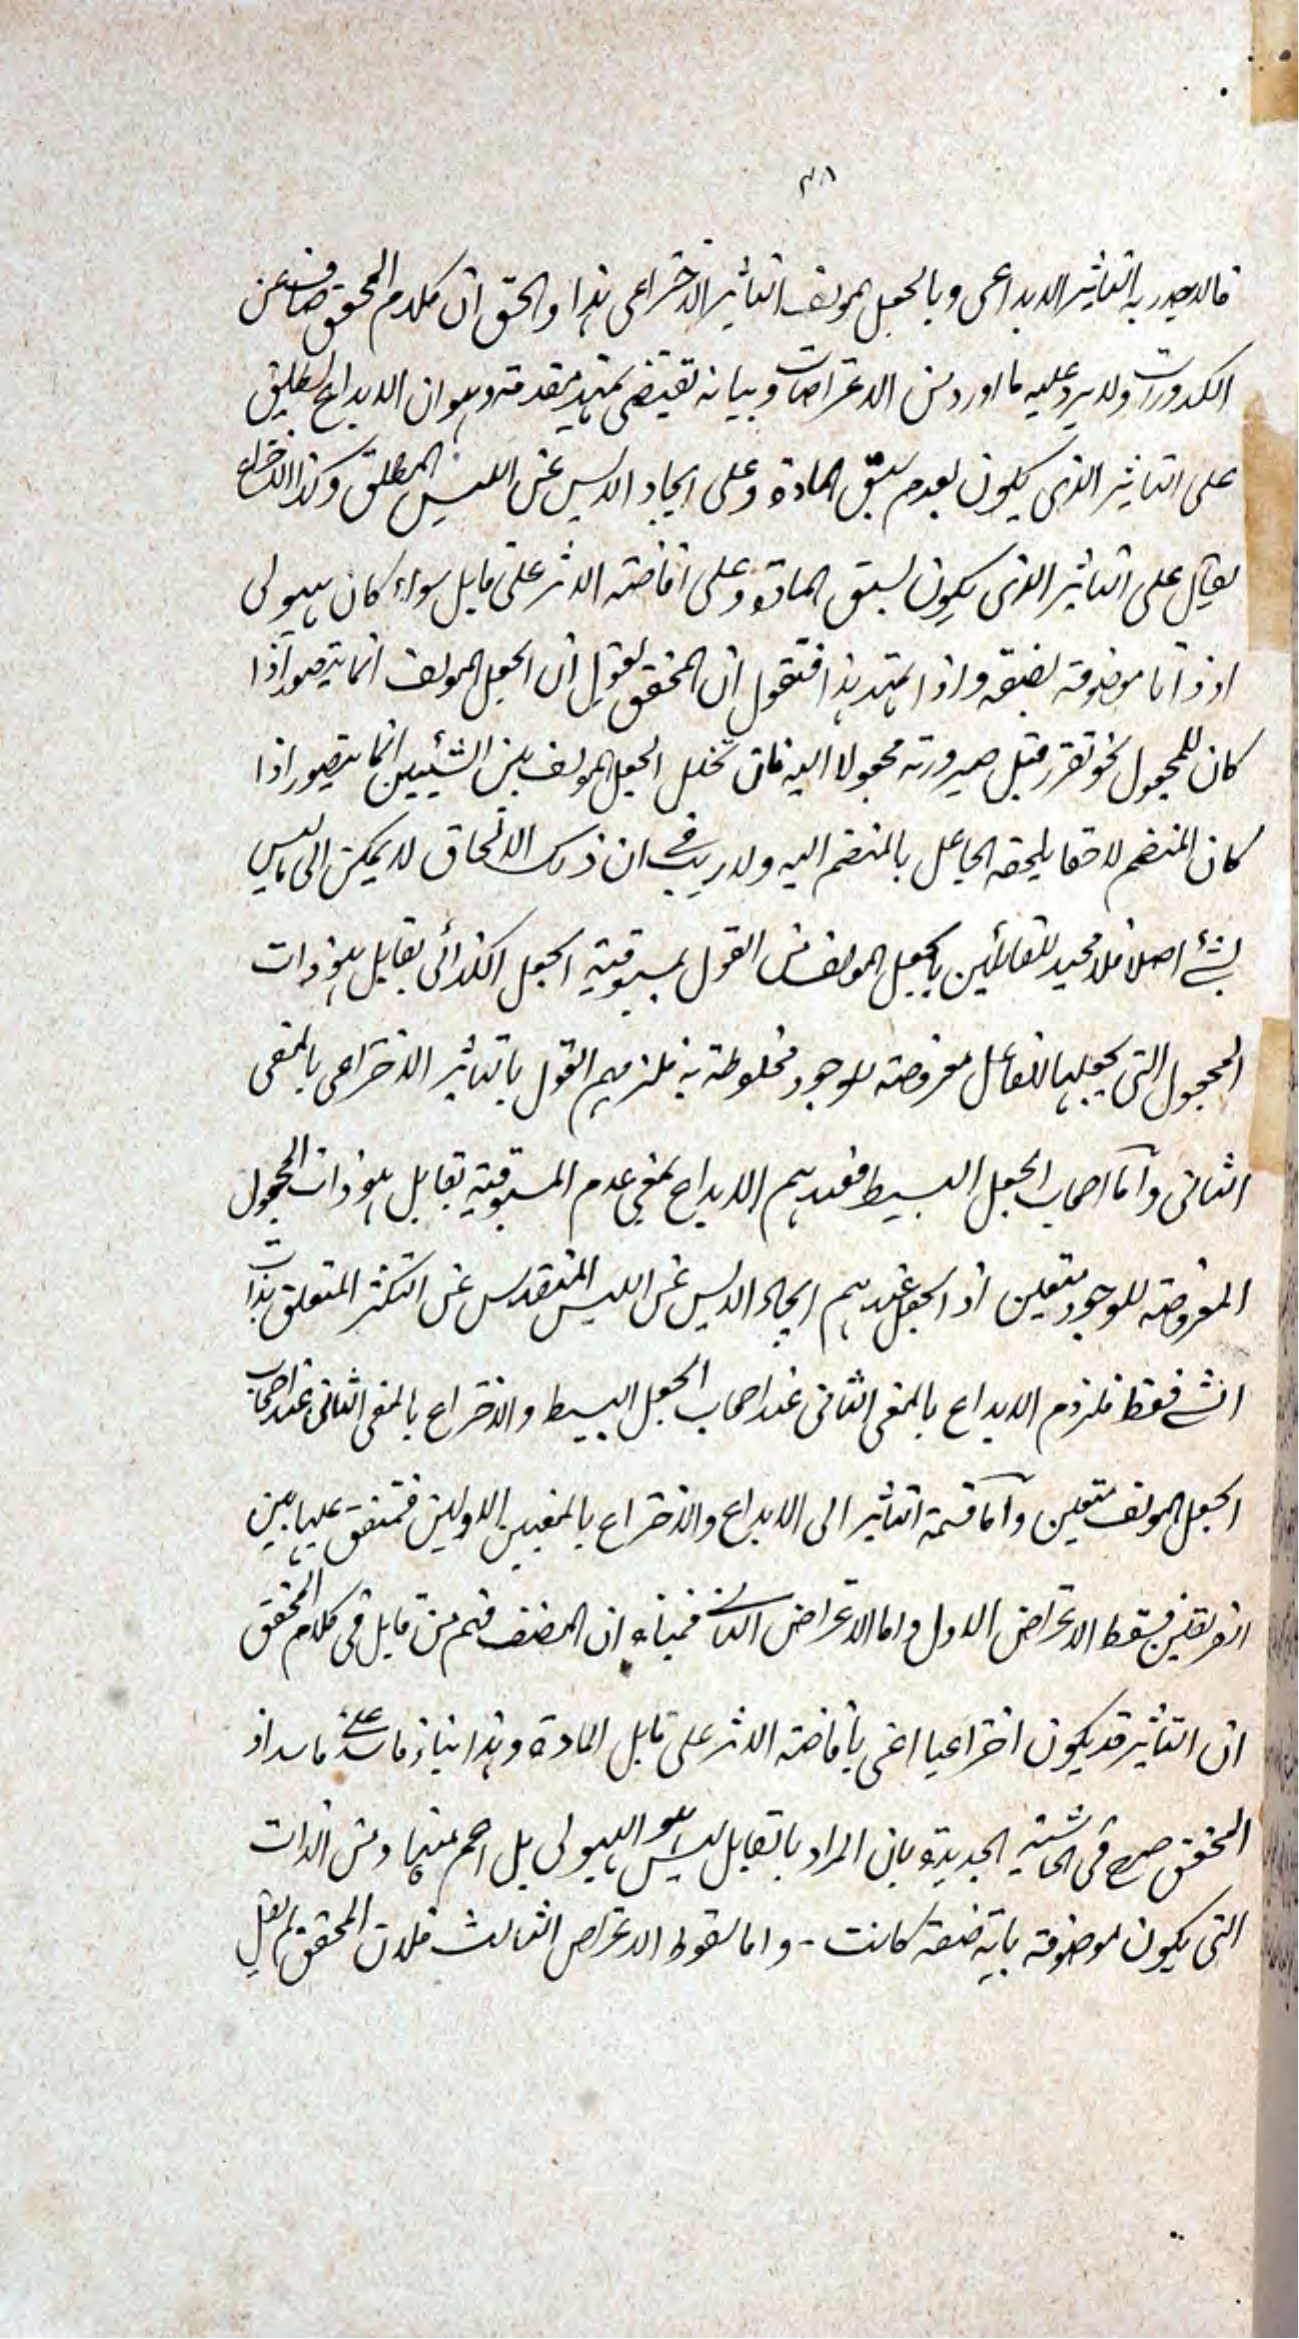 فالاجدر به التاثير الابداعى وبالجعل المولف التاثير الاختراعى هذا والحق ان كلام المحقق صاف عن
الكدورات ولا يرد عليه ما اورد من الاعتراضات وبيانه يقتضى تمهيد مقدمة وهو ان الابداع يطلق
على التاثير الذى يكون بعدم سبق المادة وعلى ايجاد الايس عن الليس المطلق وكذا الاختراع
يقال على التاثير الذى يكون بسبق المادة وعلى افاضة الاثر على قابل سواء كان هيولى
او ذاتا موصوفة بصفة واذا تمهد هذا فنقول ان المحقق يقول ان الجعل المولف انما يتصور اذا
كان للمجعول نحو تقرر قبل صيرورته مجعولا اليه فان تخلل الجعل المولف بين الشيئين انما يتصور اذا
كان المنضم لاحقا يلحقه الجاعل بالمنضم اليه ولا ريب فى ان ذلك الالحاق لا يمكن الى ما ليس
بشئ اصلا فلا محيد للقائلين بالجعل المولف من القول بمسبوقية الجعل الكذائى بقابل هو ذات
المجعول التى يجعلها الفاعل معروضة للوجود مخلوطة به فلزمهم القول بالتاثير الاختراعى بالمعنى
الثانى وأما اصحاب الجعل البسيط فعندهم الابداع بمعنى عدم المسبوقية بقابل هو ذات المجعول
المعروضة للوجود متعين اذ الجعل عندهم ايجاد الايس عن الليس المتقدس عن التكثر المتعلق بذات
الشئ فقط فلزوم الابداع بالمعنى الثانى عند اصحاب الجعل البسيط والاختراع بالمعنى الثانى عند اصحاب
الجعل المولف متعين وأما قسمة التاثير الى الابداع والاختراع بالمعنيين الاولين فمتفق عليها بين
الفريقين فسقط الاعتراض الاول واما الاعتراض الثانى فمبناه ان المصنف فهم من قابل فى كلام المحقق
ان التاثير قد يكون اختراعيا اعنى بافاضة الاثر على قابل المادة وهذا بناء فاسد على فاسد اذ
المحقق صرح فى الحاشية الجديدة بان المراد بالقابل ليس هو الهيولى بل اعم منها ومن الذات
التى يكون موصوفة باية صفة كانت - واما سقوط الاعتراض الثالث فلان المحقق لم يقل